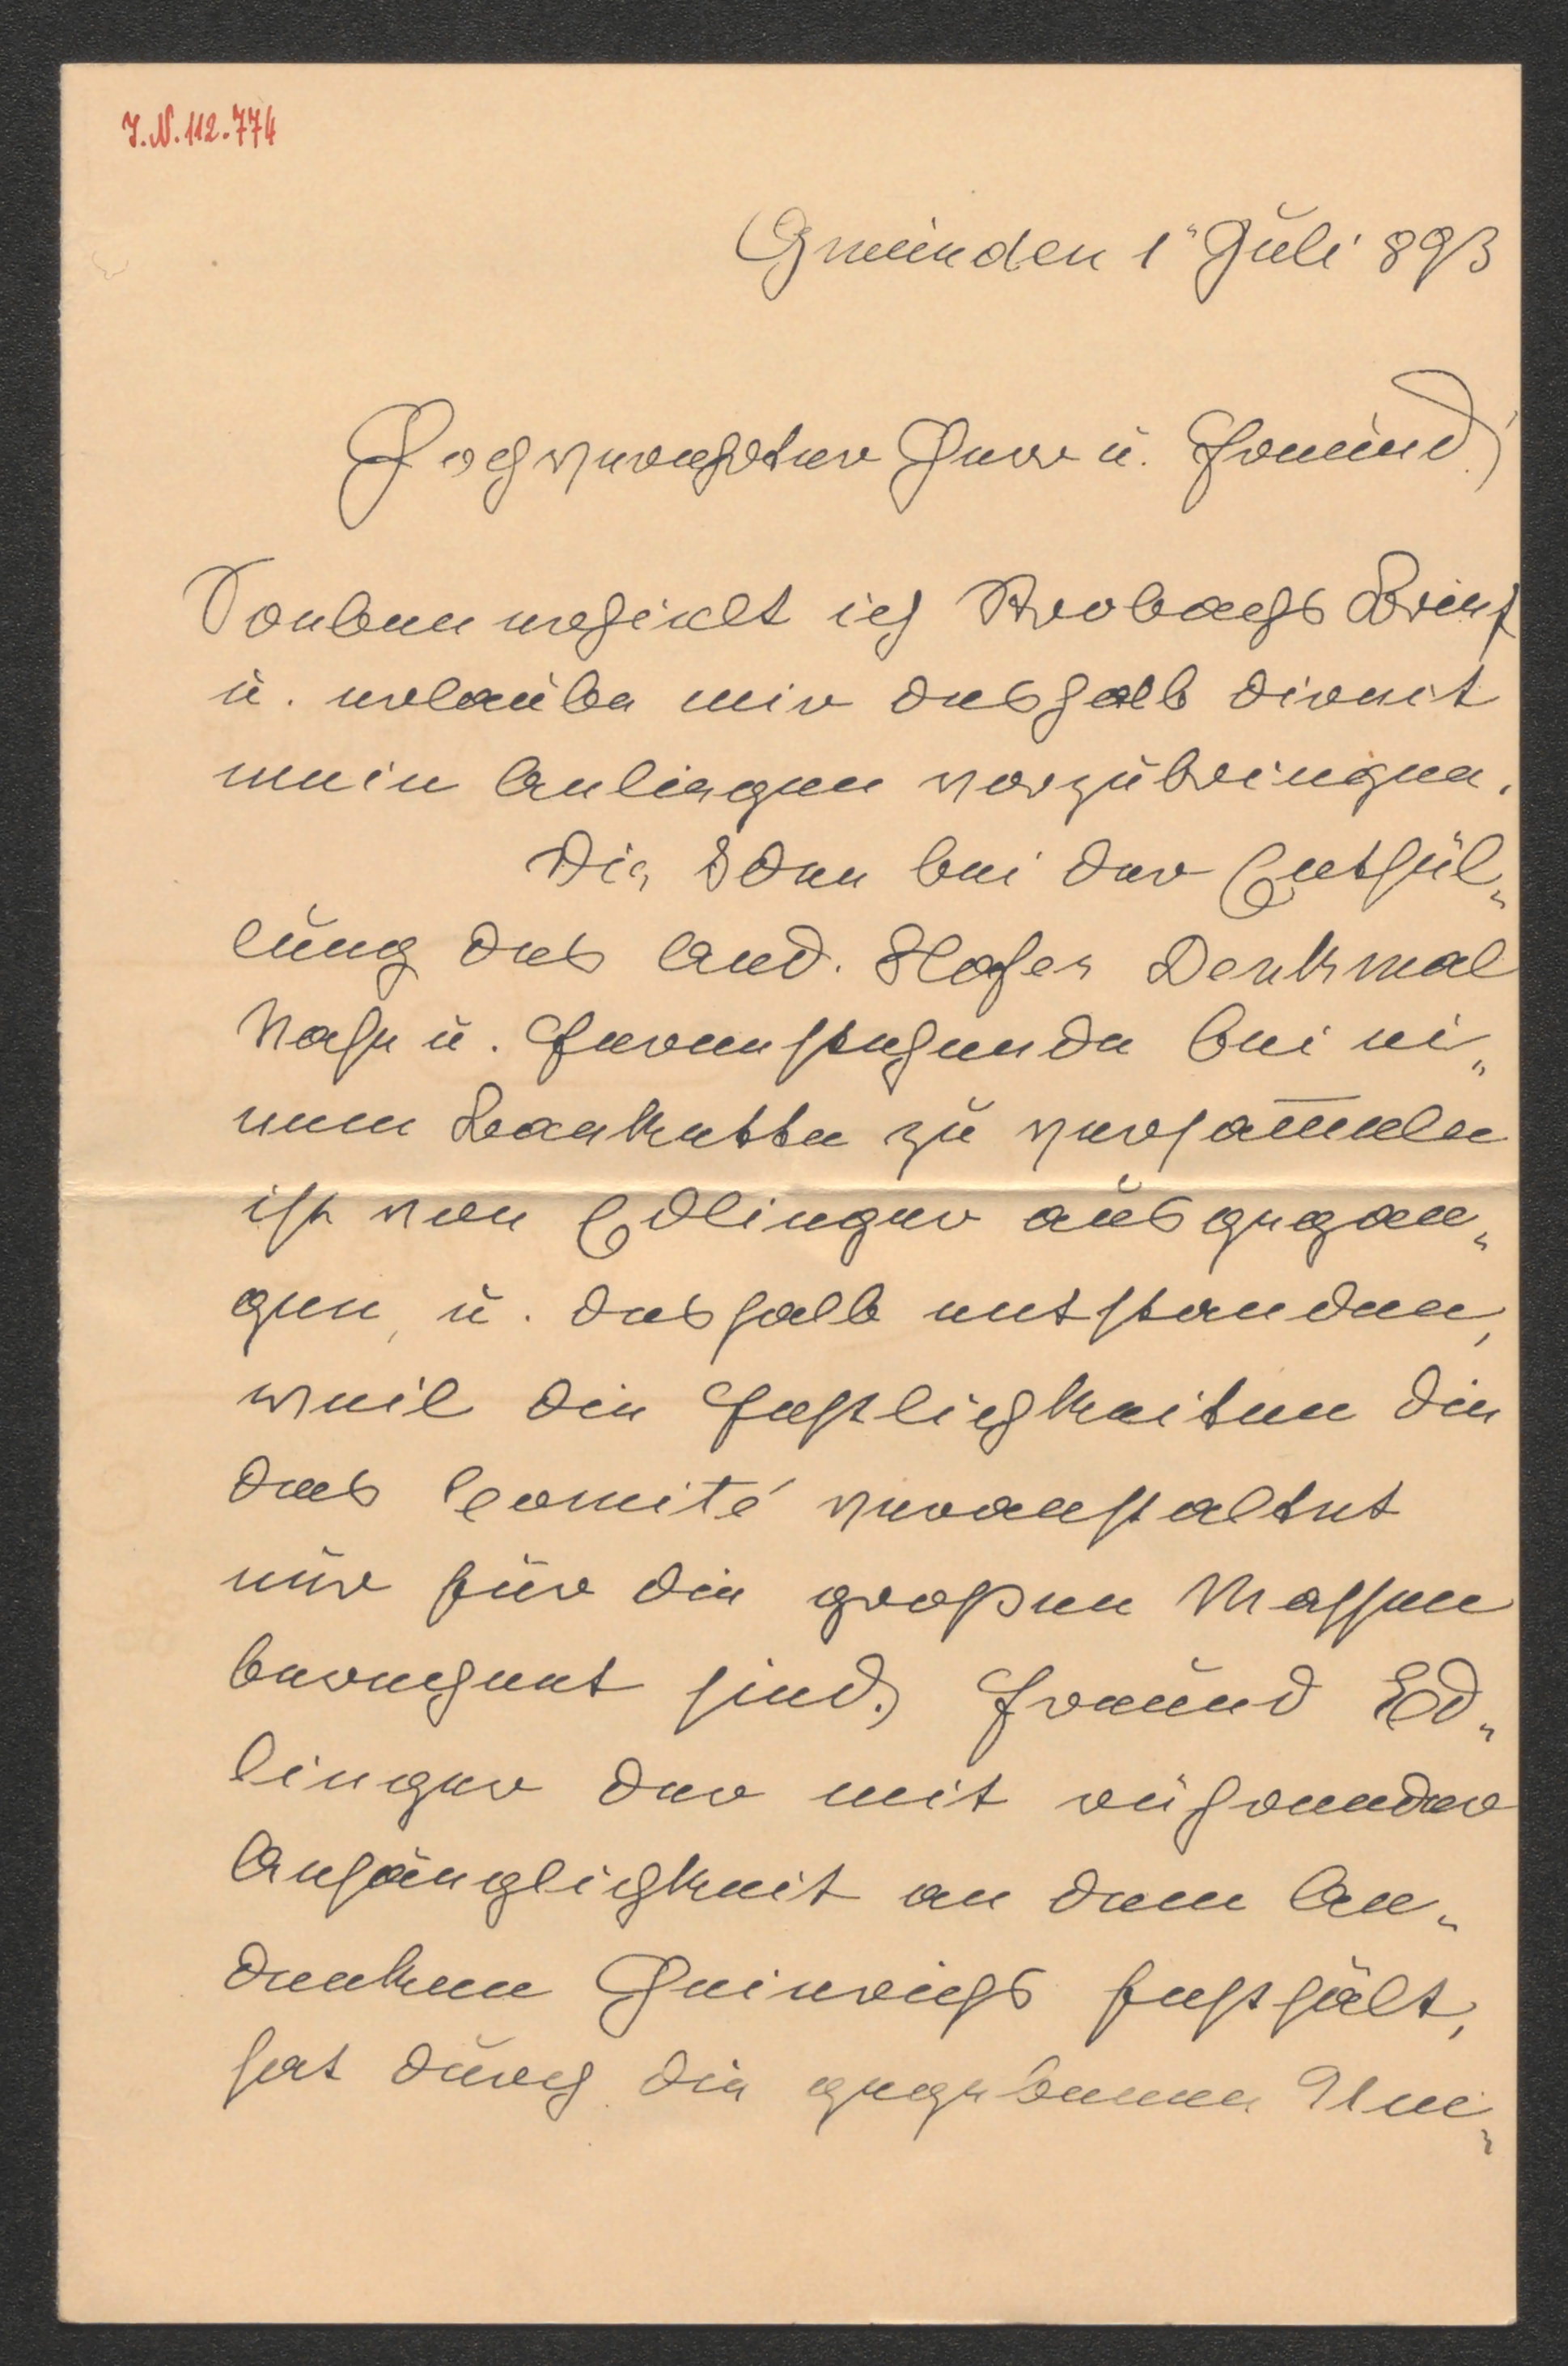 J.N. 112.774
Gmünden 1" Juli 893
Hochverehrter Herr u. Freund!
Soeben erhielt ich Brief
u. erlaube mir deshalb direct
mein Anliegen vorzubringen.
Die Idee bei der Enthül„
lung des And. Hofer Denkmal
Nahe u. Fernerstehende bei ei„
nem Bankette zu versam̅eln
ist von Edlinger ausgegan„
gen, u. deshalb entstanden,
weil die Festlichkeiten die
das Comité veranstaltet
nur für die großen Massen
berechnet sind. Freund Ed„
linger der mit rührender
Anhänglichkeit an dem An„
denken Heinrichs festhält,
hat durch die gegebenen Um„